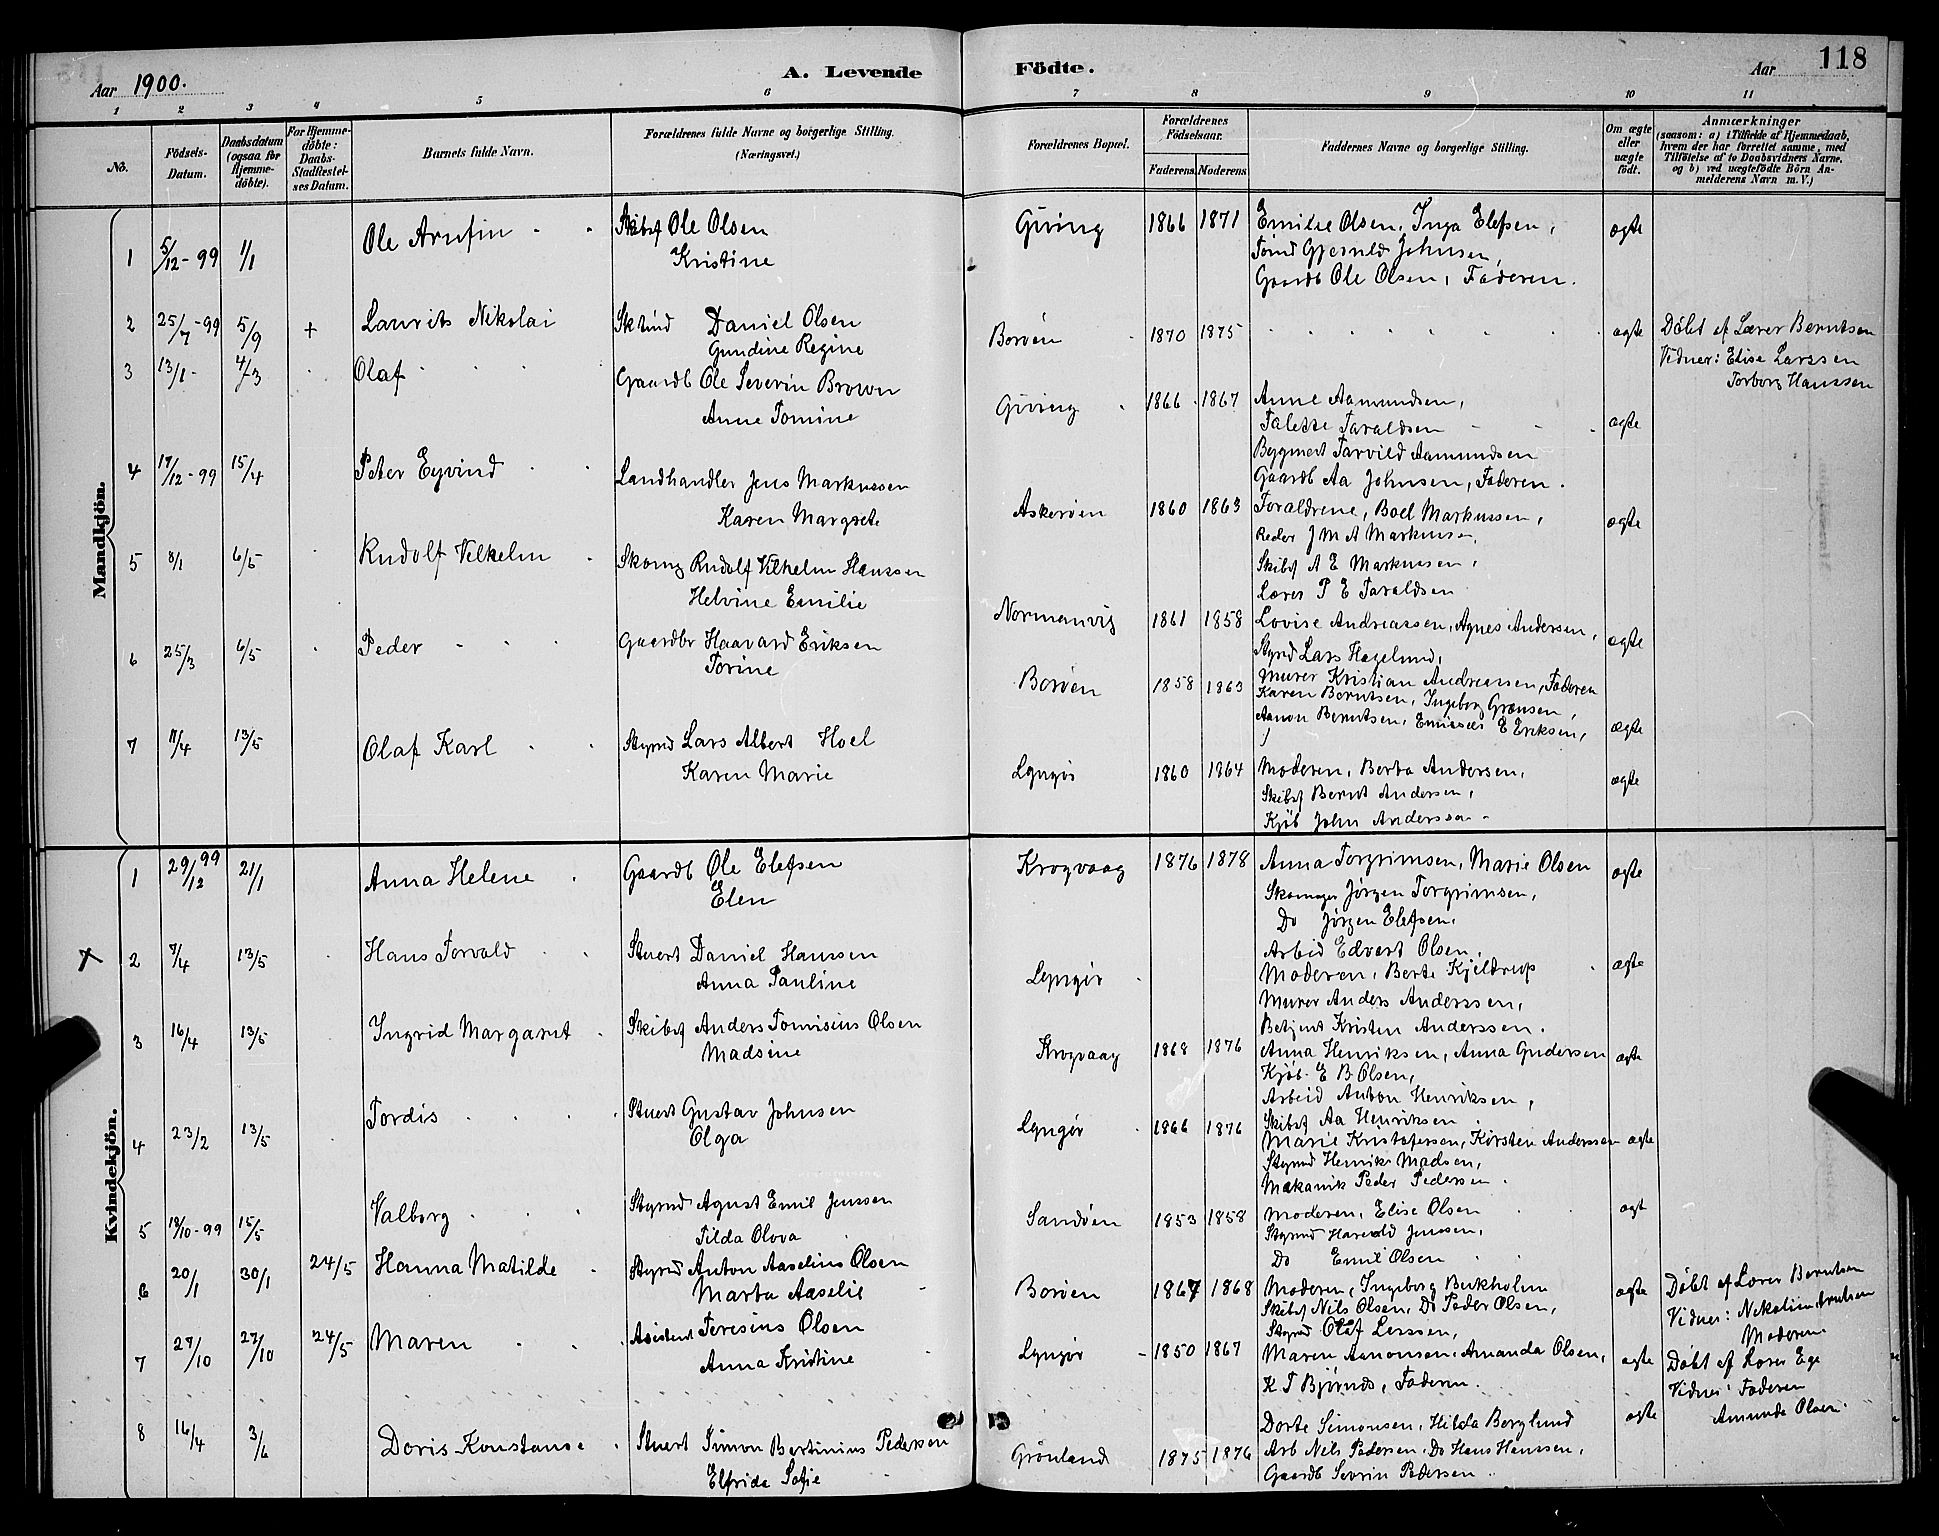 Aar 1900.
A. Levende
Födte.
Aar
118
1 2 3 4 5 6 7 8 9 10 11
No.
Födsels-Datum.
Daabsdatum (ogsaa for Hjemme-döbte).
For Hjemme-döbte: Daabs-Stadfæstel-ses Datum.
Barnets fulde Navn.
Forældrenes fulde Navne og borgerlige Stilling.
(Næringsvei.)
Forældrenes Bopæl.
Forældrenes Födselsaar.
Faderens. Moderens
Faddernes Navne og borgerlige Stilling.
Om ægte eller uægte födt.
Anmærkninger
(saasom: a) i Tilfælde af Hjemmedaab, hvem der har forrettet samme, med Tilföielse af to Daabsvidners Navne, og b) ved uægtefödte Börn An-melderens Navn m. V.)
Mandkjön.
1 5/12-99 1/1 Ole Arnfin Skibsf Ole Olsen
Kristine
Giving 1866 1871 Emilie Olsen, Inga Elefsen,
Johnsen,
Gaardb Ole Olsen, Faderen.
ægte
2 25/7-99 5/9 + Laurits Nikolai Daniel Olsen
Gundine Regine
Borøen 1870 1875 ægte
Døbt af Lærer Berntsen
Vidner: Elise Larssen
Torborg Hanssen
3 13/1 4/3 Olaf Gaardb Ole Severin Brown
Anne Tomine
Giving 1866 1867 Anne Aamundsen,
Talette Taraldsen
Bygmest Tarvild Aamundsen
Gaardb Aa Johnsen, Faderen.
ægte
4 17/12-99 15/4 Peter Eyvind Landhandler Jens Markussen
Karen Margrete
Askerøen 1860 1863 Forældrene, Boel Markussen,
Reder J M A Markussen,
Skibsf A E Markussen,
Lærer P E Taraldsen
ægte
5 8/1 6/5 Rudolf Vilhelm Skomg Rudolf Vilhelm Hanssen
Helvine Emilie
Normanvig 1861 1858 Lovise Andreassen, Agnes Andersen,
Styrmd Lars Hagelund,
Murer Kristian Andreassen, Faderen
ægte
6 25/3 6/5 Peder Gaardbr Haavard Eriksen
Torine
Borøen 1858 1863 Karen Berntsen, Ingeborg Grønsen,
Aanon Berntsen, Emissær E Eriksen,
ægte
7 11/4 13/5 Olaf Karl Styrmd Lars Albert Hoel
Karen Marie
Lyngør 1860 1864 Moderen, Berta Andersen,
Skibsf Bernt Andersen,
Kjøb John Anderssen
ægte
Kvindekjön.
1 29/12 99 21/1 Anna Helene Gaardb Ole Elefsen
Elen
Krogvaag 1876 1878 Anna Torgrimsen, Marie Olsen
Skomager Jørgen Torgrimsen,
Do Jørgen Elefsen,
Arbeid Edvart Olsen,
ægte
+ 2 7/4 13/5 Hans Torvald Stuert Daniel Hanssen
Anna Pauline
Lyngør Moderen, Berte Kjeldrup
Murer Anders Anderssen,
Betjent Kristen Anderssen.
ægte
3 16/4 13/5 Ingrid Margaret Skibsf Anders Tomisius Olsen
Madsine
Krogvaag 1868 1876 Anna Henriksen, Anna Gudersen
Kjøb. E B Olsen,
Arbeid Anton Henriksen,
Skibsf Aa Henriksen
ægte
4 23/2 13/5 Tordis Stuert Gustav Johnsen
Olga
Lyngør 1866 1876 Marie Kristofersen, Kirsten Anderssen
Styrmd Henrik Madsen,
Mekanik Peder Pedersen.
ægte
5 18/10-99 15/5 Valborg Styrmd Agust Emil Jenssen
Tilda Olova
Sandøen 1853 1858 Moderen, Elise Olsen
Styrmd Harald Jenssen,
Do Emil Olsen
ægt
6 20/1 30/1 24/5 Hanna Matilde Styrmd Anton Aaselius Olsen
Marta Aaselie
Borøen 1867 1868 Moderen, Ingeborg Birkholm
Skibsf Nils Olsen, Do Peder Olsen,
Styrmd Olaf Lerssen,
ægte
Døbt af Lærer Berntsen
Vidner: Nikoline
Moderen
7 27/10 27/10 24/5 Maren Asistent Teresius Olsen
Anna Kristine
Lyngør 1850 1867 Maren Aanonsen, Amanda Olsen,
K T Bjørnes, Faderen.
ægte
Døbt af Lærer Ege
Vidner: Faderen
Amanda Olsen.
8 16/4 3/6 Doris Konstanse Stuert Simon Bertinius Pedersen
Elfrida Sofie
Grönland 1875 1876 Dorte Simonsen, Hilda Berglund
Arb Nils Pedersen, Do Hans Hanssen,
Gaardb Sevrin Pedersen
ægte